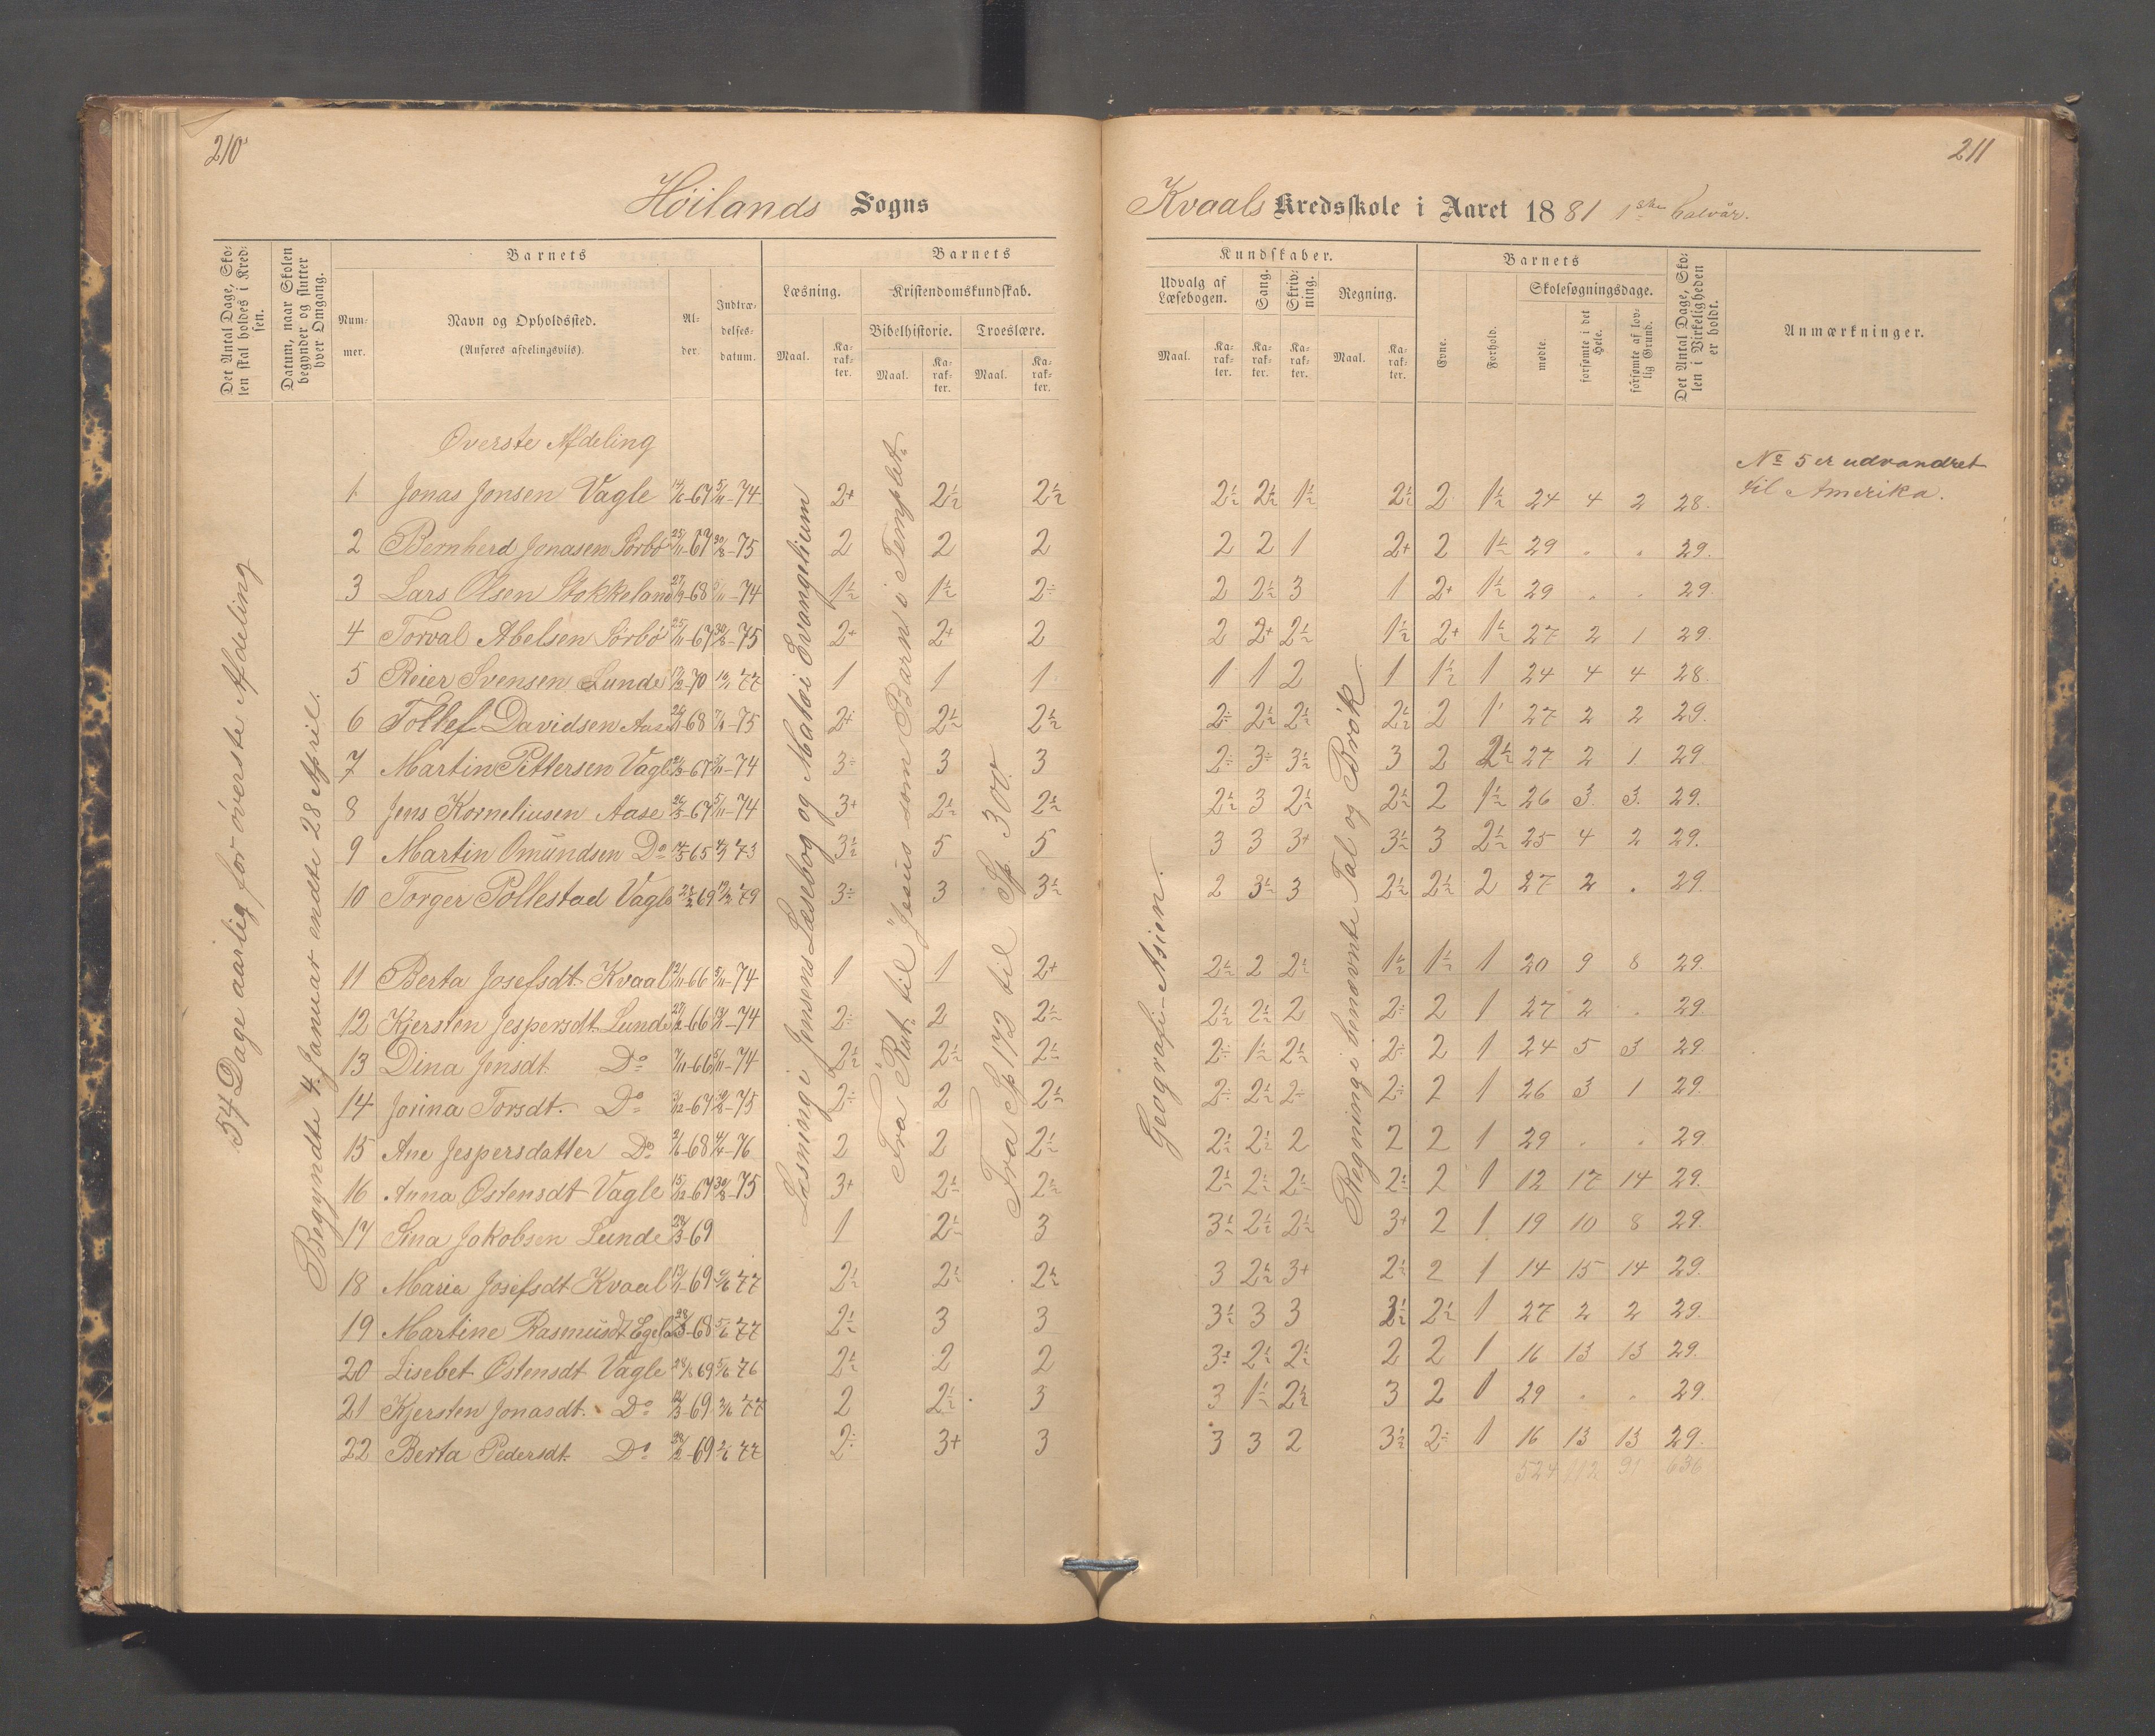 210
211
Höilands Sogns
Kvaals Kredsskole i Aaret 1881 1ste halvår.
Det Antal Dage, Skolen skal holdes i Kredsen.
Datum, naar Skolen begynder og slutter hver Omgang.
Barnets
Nummer.
Navn og Opholdssted.
(Anføres afdelingsviis).
Alder.
Indtrædelsesdatum.
Barnets
Læsning.
Kristendomskundskab.
Bibelhistorie.
Troeslære.
Maal. Karakter. Maal. Karakter. Maal. Karakter.
Kundskaber.
Udvalg af Læsebogen.
Sang.
Skrivning.
Regning.
Maal. Karakter. Karakter. Karakter. Maal. Karakter.
Barnets
Evne.
Forhold.
Skolesøgningsdage.
mødte.
forsømte i det Hele.
forsømte af lovlig Grund.
Det Antal Dage, Skolen i Virkeligheden er holdt.
Anmærkninger.
54 Dage aarlig for øverste Afdeling
Begyndte 4. Januar endte 28 April.
Læsning i Jensens Læsebog og Matæi Evangelium
Fra "Rut" til "Jesus som Barn i Templet."
Fra Sp 172 til Sp. 300.
Geografi - Asien.
Regning i benævnte Tal og Brök.
Øverste Afdeling
1 Jonas Jonsen Vagle 14/6-67 5/11-74 2+ 2½ 2½ 2½ 2½ 1½ 2½ 2 1½ 24 4 2 28.
2 Bernherd Jonasen Sörbö 25/11-67 30/8-75 2 2 2 2 2 1 2+ 2 1½ 29 . . 29.
3 Lars Olsen Stokkeland 27/9-68 5/11-74 1½ 1½ 2÷ 2 2½ 3 1 2+ 1½ 29 . . 29.
4 Torval Abelsen Sörbö 25/11-67 30/8-75 2+ 2+ 2 2 2+ 2½ 1½ 2+ 1½ 27 2 1 29.
5 Reier Svensen Lunde 17/2-70 77 1 1 1 1 1 2 1 1½ 1 24 4 4 28.
6 Tollef Davidsen Aase 68 75 2+ 2½ 2½ 2÷ 2½ 2½ 2½ 2 1 27 2 2 29.
7 Martin Pittersen Vagle 67 5/11-74 3÷ 3 3 2÷ 3÷ 3½ 3 2 2½ 27 2 1 29
8 Jens Korneliusen Aase 67 5/11-74 3+ 2½ 2½ 2½ 3 2½ 2½ 2 1½ 26 3 3 29.
9 Martin Omundsen Do 65 73 3½ 5 5 3 3 3+ 3½ 3 2½ 25 4 2 29.
10 Torger Pollestad Vagle 69 79 3÷ 3 3½ 2 3½ 3 2½ 2½ 2 27 2 . 29.
11 Berta Josefsdt. Kvaal 66 5/11-74 1 1 2+ 2½ 2 2½ 1½ 1½ 1 20 9 8 29.
12 Kjersten Jespersdt. Lunde 66 74 2÷ 2 2½ 2½ 2½ 2 2÷ 2 1 27 2 . 29
13 Dina Jensdt. Do 7/11-66 5/11-74 2½ 2½ 2½ 2÷ 1½ 2½ 2÷ 2 1 24 5 3 29.
14 Jorina Torsdt. Do 67 75 2÷ 2 2½ 2÷ 2½ 2÷ 2÷ 2 1 26 3 1 29.
15 Ane Jespersdatter Do 68 76 2 2 2½ 2½ 2½ 2 2 2 1 29 . . 29
16 Anna Östensdt Vagle 15/12-67 30/8-75 3+ 2½ 2½ 2½ 2½ 2½ 2½ 2 1 12 17 14 29.
17 Sina Jakobsen Lunde 69 1 2½ 3 3½ 2½ 2½ 3+ 2 1 19 10 8 29.
18 Maria Josefsdt Kvaal 69 77 2½ 2½ 2½ 3 2½ 3+ 2½ 2 1 14 15 14 29.
19 Martine Rasmusdt Egeland 68 77 2½ 3 3 3½ 3 3 3½ 2½ 1 27 2 2 29.
20 Lisebet Östensdt Vagle 69 76 2½ 2 2 3+ 2½ 2½ 2 2 1 16 13 13 29.
21 Kjersten Jonasdt. Do 69 77 2 2½ 3 3 1½ 2½ 3 2 1 29 . . 29.
22 Berta Pedersdt. Do 69 77 2÷ 3+ 3 3 3 2 3½ 2÷ 1 16 13 13 29.
524 112 91 636
No 5 er udvandret
til Amerika.